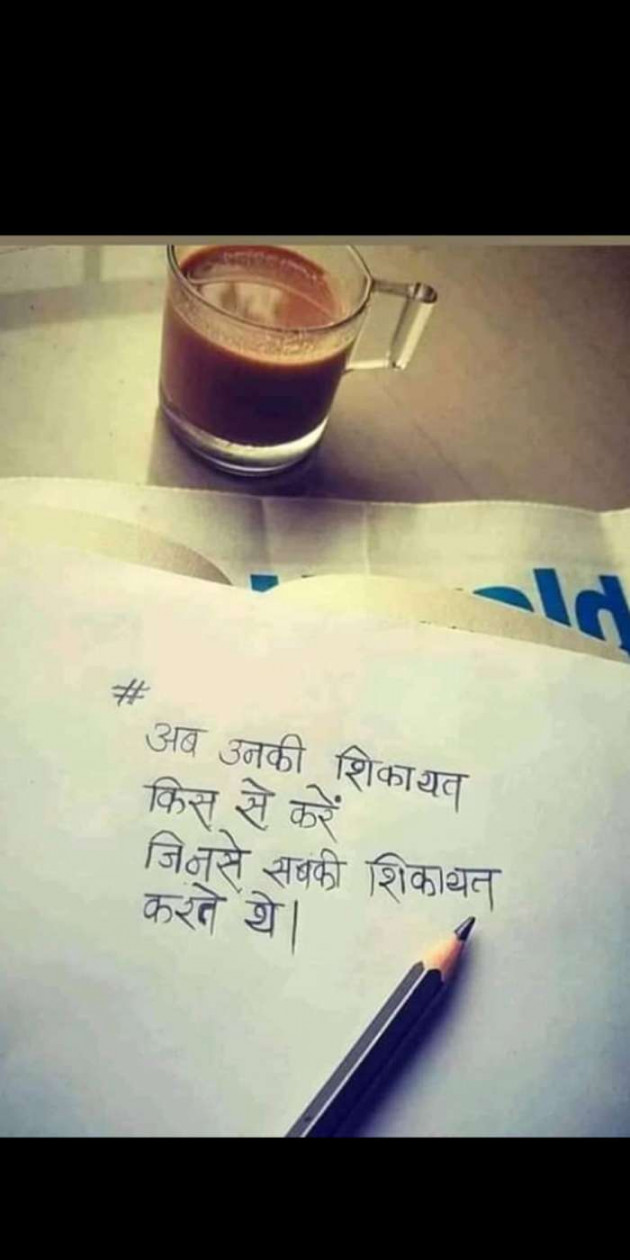 #
अब उनकी शिकायत
किस से करें
जिनसे सबकी शिकायत
करते थे।